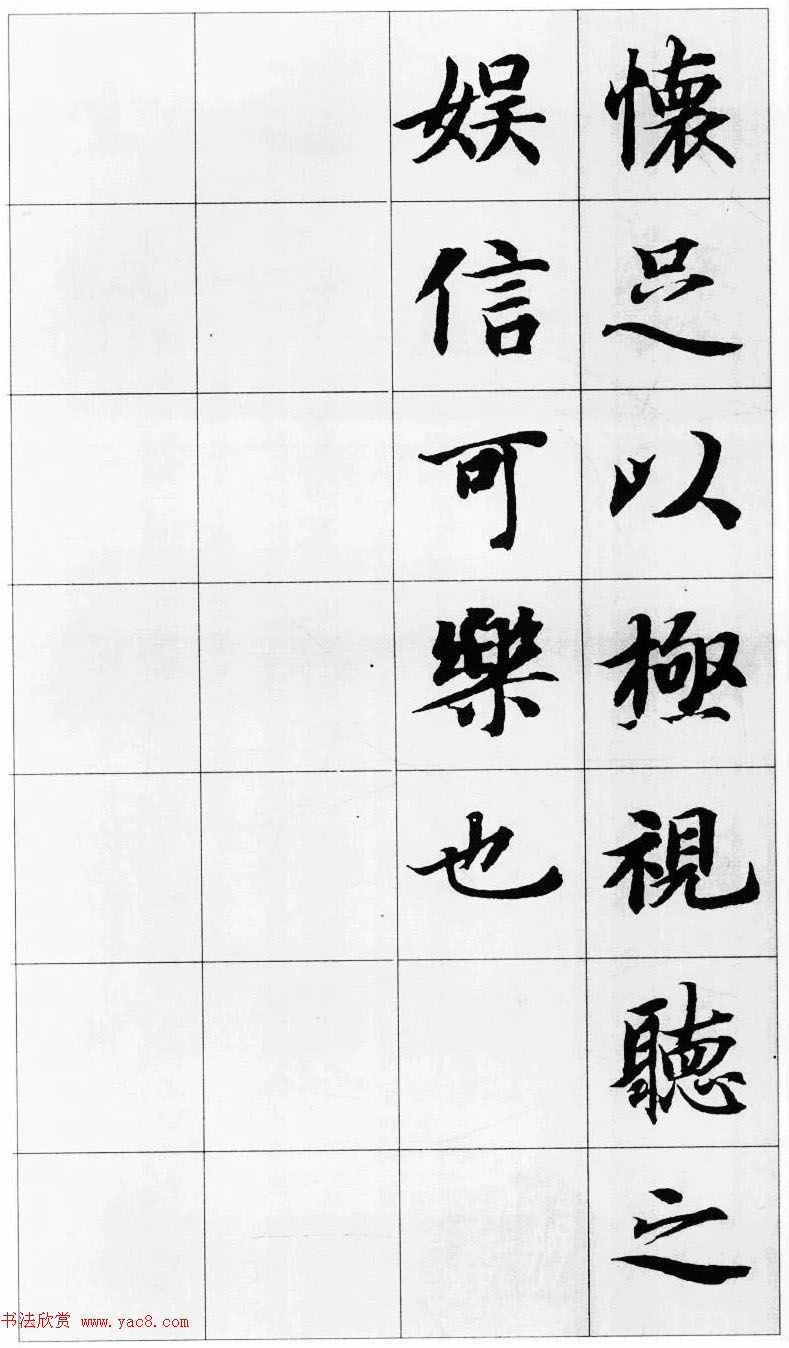 懐足以極視聽之
娯信可樂也
书法欣赏 www.yac8.com